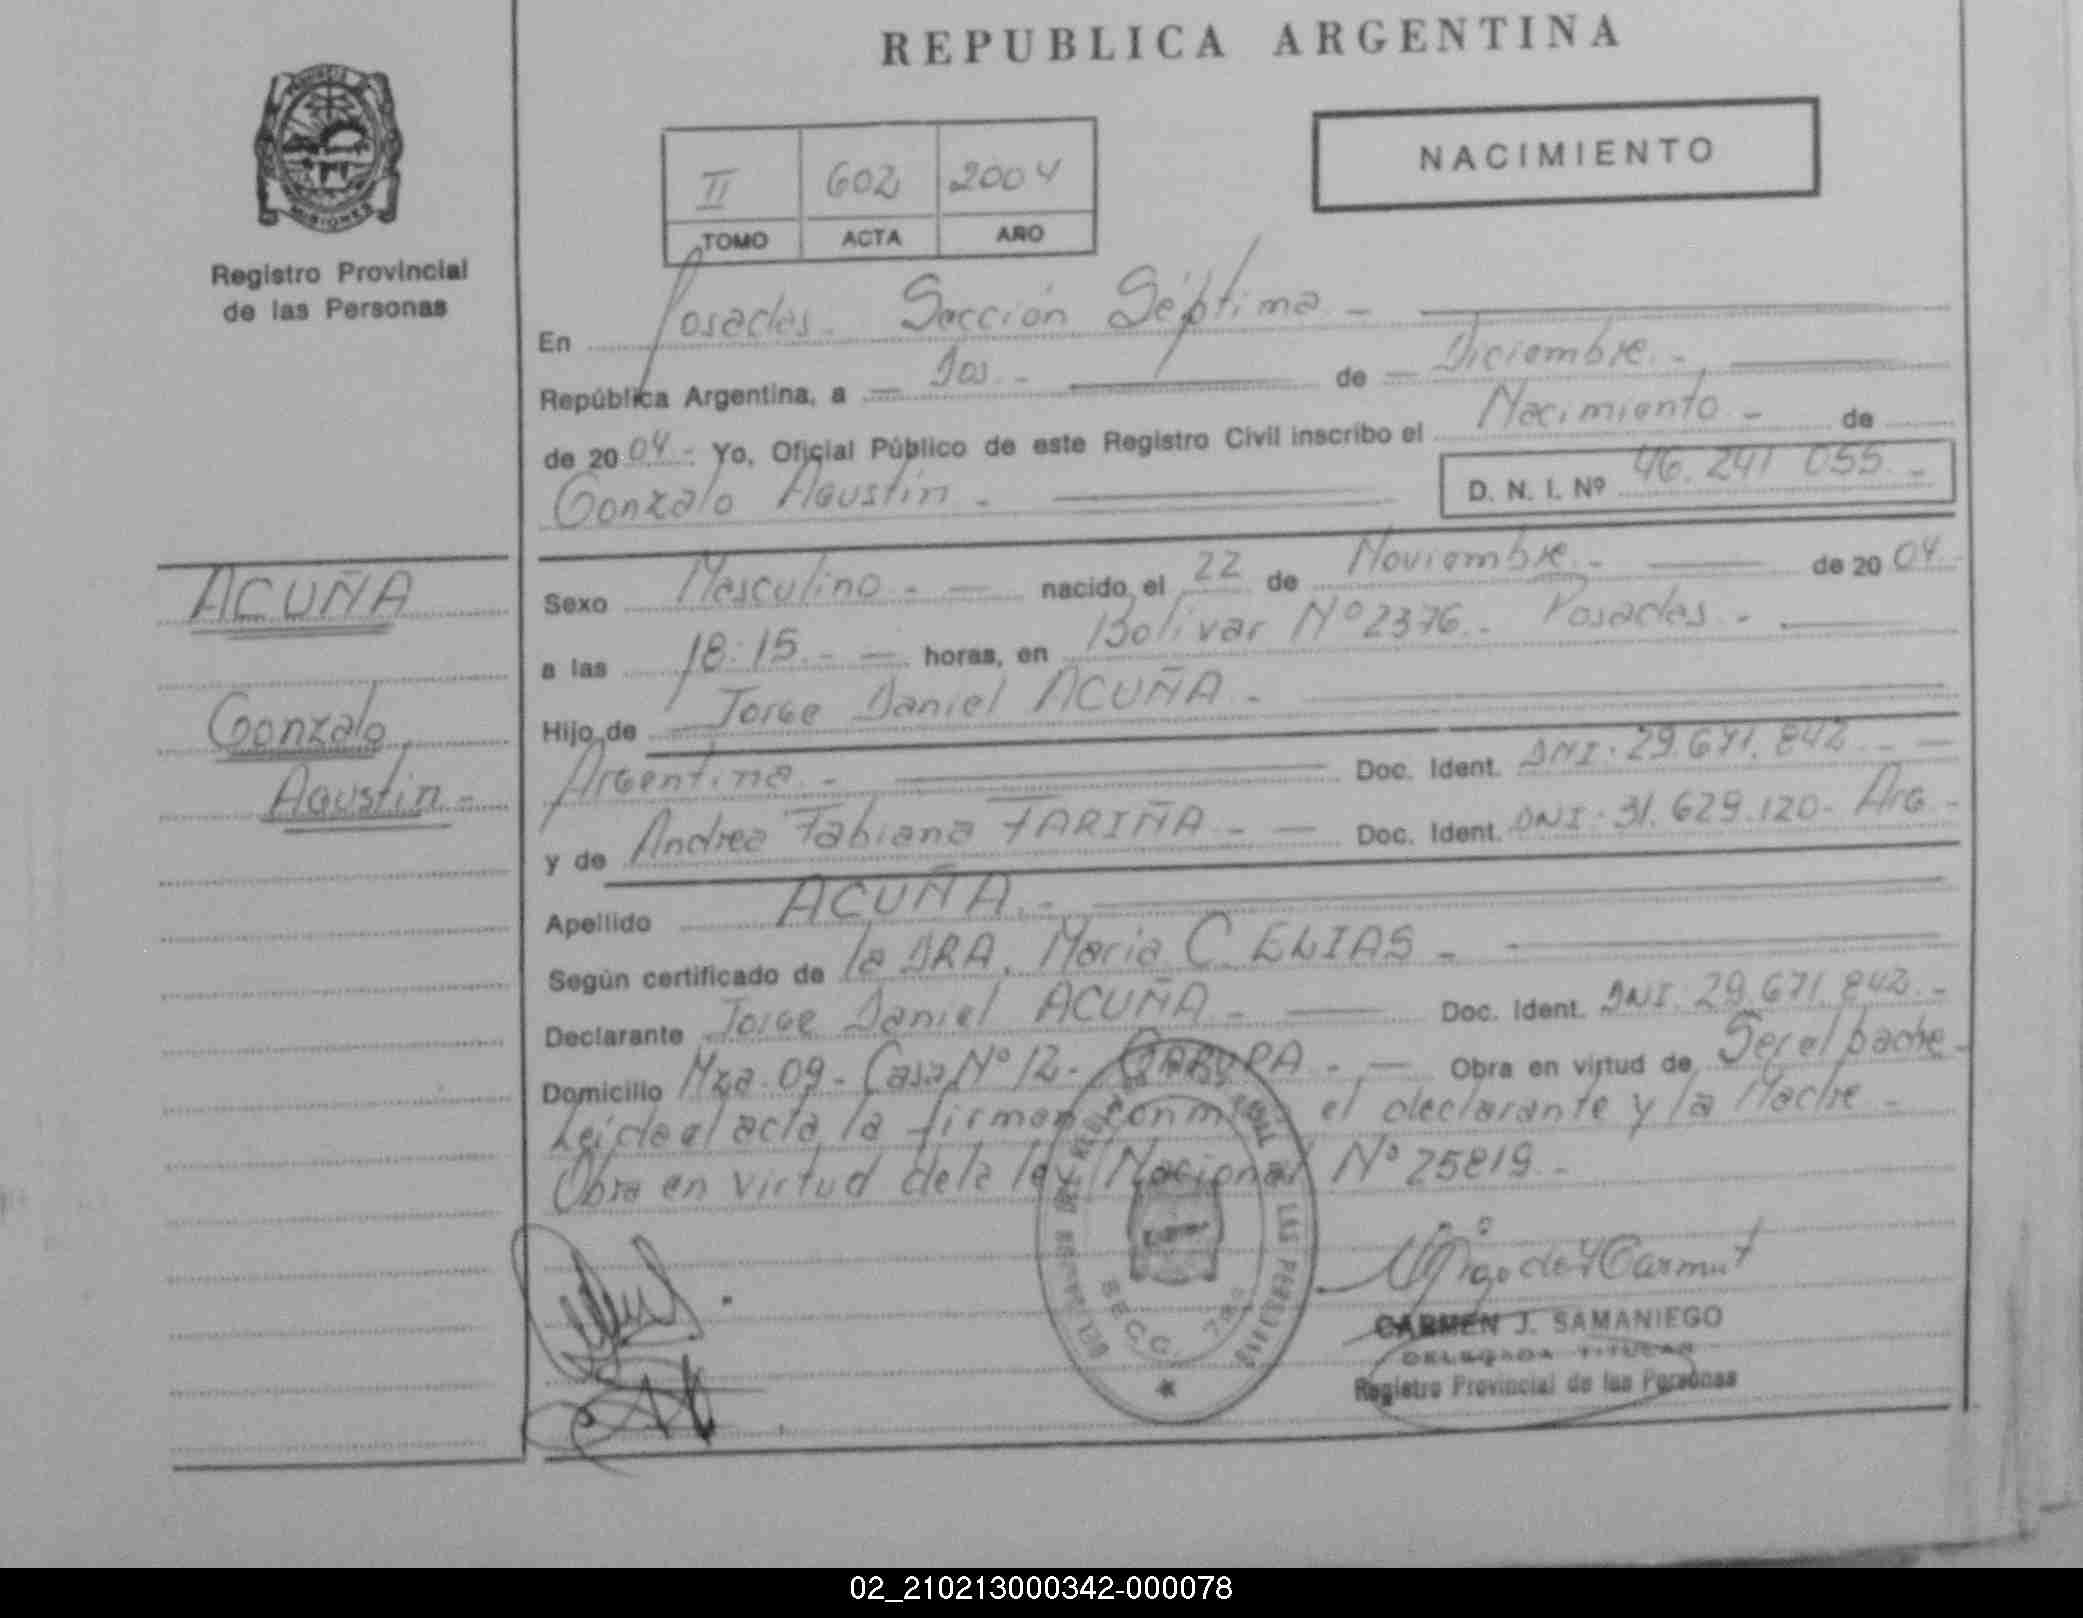 REPUBLICA ARGENTINA
NACIMIENTO
II 602 2004
TOMO ACTA AÑO
MISIONES
Registro Provincial
de las Personas
En Posadas. Sección Séptima -
República Argentina, a - Dos - de - Diciembre. -
de 20 04 - Yo, Oficial Público de este Registro Civil inscribo el Nacimiento - de
Gonzalo Agustín - D. N. I. Nº 46.241 055. -
ACUÑA
Gonzalo
Agustín -
Sexo Masculino - - nacido el 22 de Noviembre. - de 20 04.
a las 18:15. - - horas, en Bolivar Nº 2376. - Posadas -
Hijo de Jorge Daniel ACUÑA -
Argentina - Doc. Ident. DNI. 29.671.842 - -
y de Andrea Fabiana FARIÑA - - Doc. Ident. DNI. 31.629.120 - Arg -
Apellido ACUÑA. -
Según certificado de la DRA. Maria C. ELIAS -
Declarante Jorge Daniel ACUÑA - Doc. Ident. DNI. 29.671.842. -
Domicilio Mza. 09 - Casa Nº 12 - GARUPA - - Obra en virtud de Ser el padre -
Leída el acta la firman el declarante y la Madre -
Obra en virtud de la ley Nacional Nº 25819 -
LAS PERSONAS
SECC. 7
CARMEN J. SAMANIEGO
DELEGADA TITULAR
Registro Provincial de las Personas
02_210213000342-000078